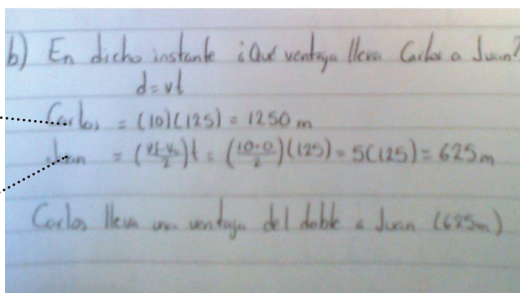 b) En dicho instante ¿Qué ventaja lleva Carlos a Juan?
d = vt
Carlos = (10)(125) = 1250 m
Juan = (\frac{vf-vo}{2})t = (\frac{10-0}{2})(125) = 5(125) = 625 m
Carlos lleva una ventaja del doble a Juan (625m)